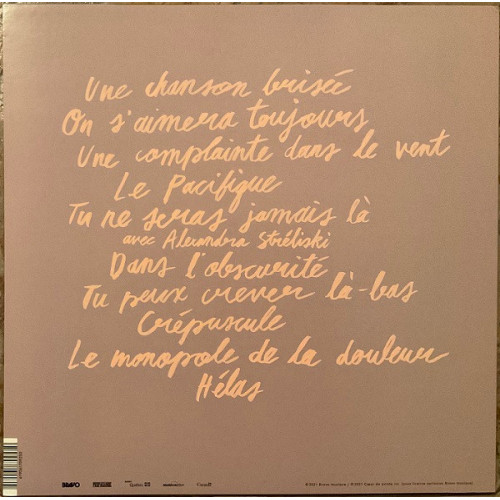 Une chanson brisée
On s'aimera toujours
Une complainte dans le vent
Le Pacifique
Tu ne seras jamais là
avec Alexandra Stréliski
Dans l'obscurité
Tu peux crever là-bas
Crépuscule
Le monopole de la douleur
Hélas
BRAVO